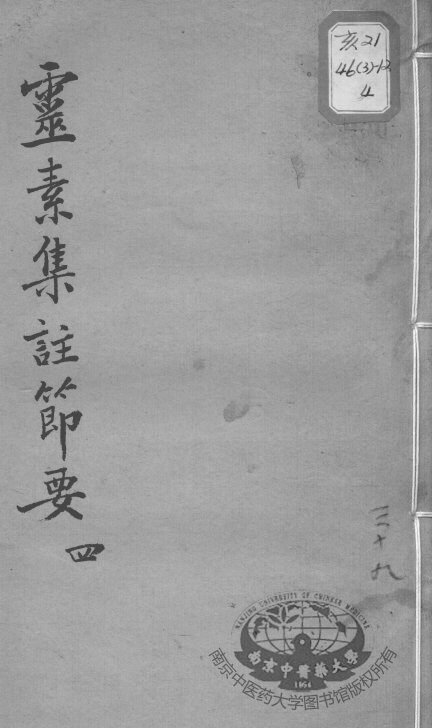 亥21
46(3)-12
4
靈素集註節要
四
三十九
NANJING UNIVERSITY OF CHINESE MEDICINE
南京中醫藥大學
1954
南京中医药大学图书馆版权所有